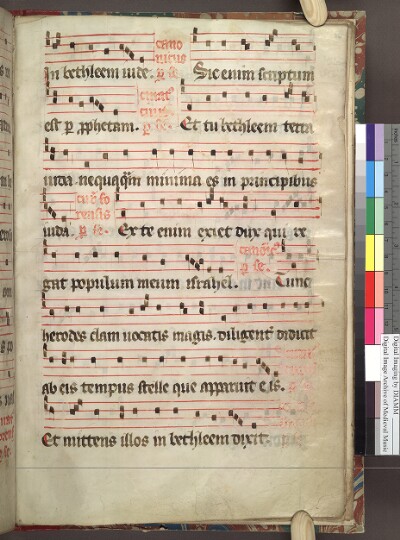 In bethleem iude. Sic enim scriptum
est p pphetam. Et tu bethleem terra
iuda nequaqm minima es in principibus
iuda. Ex te enim exiet dux qui re
gat populum meum israhel. Tunc
herodes clam uocatis magis. diligent didicit
ab eis tempus stelle que apparuit eis.
Et mittens illos in bethleem dixit.
Digital Imaging by DIAMM
Digital Image Archive of Medieval Music